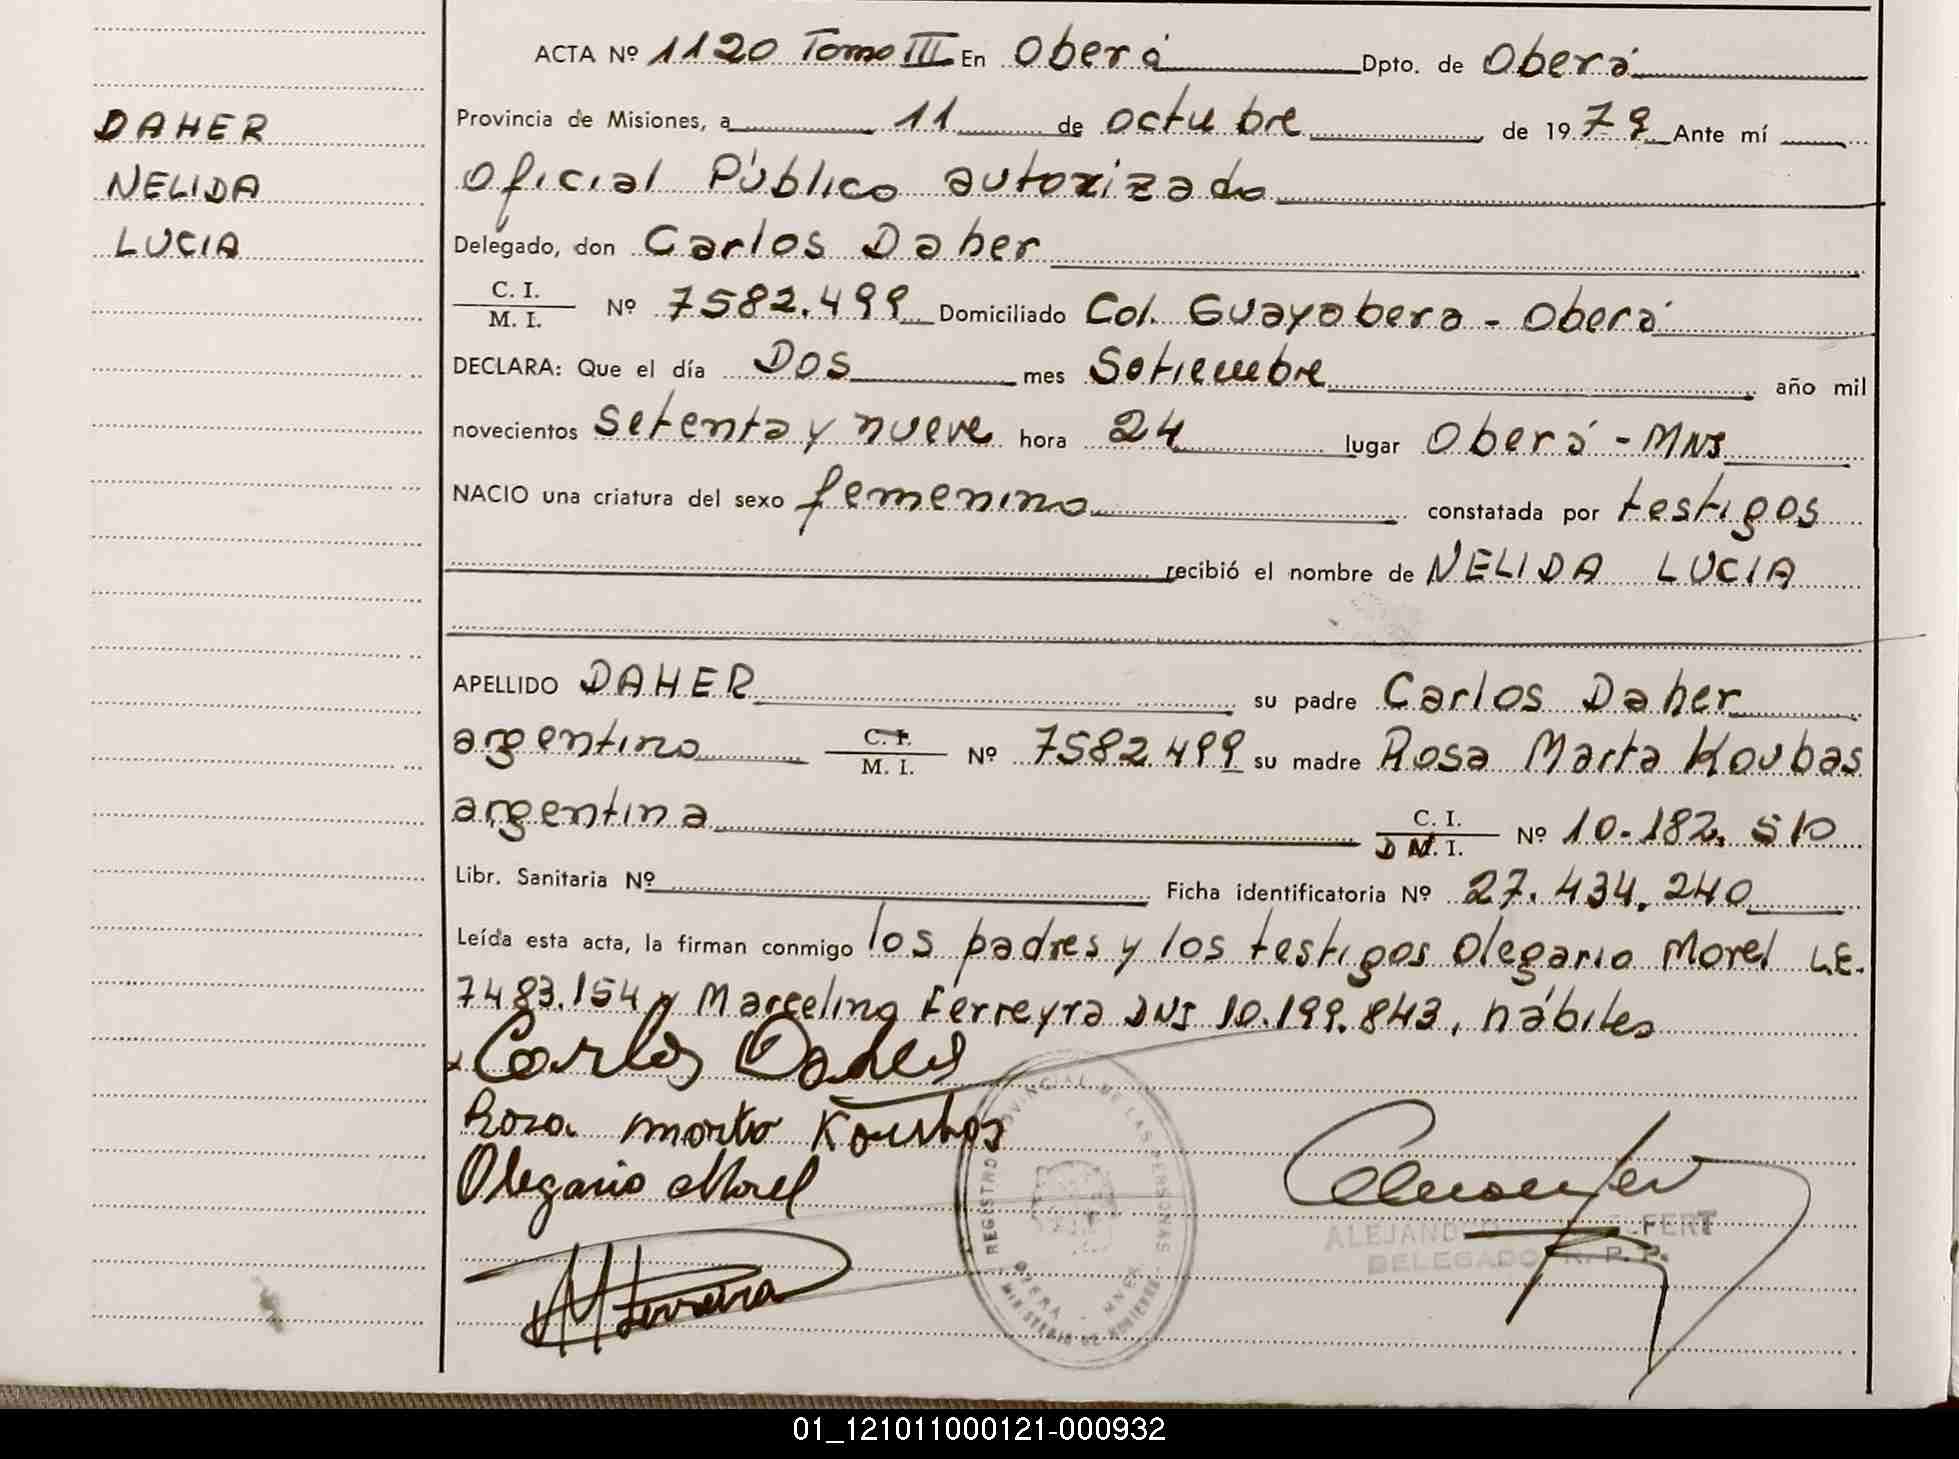 ACTA Nº 1120 Tomo III En Oberá Dpto. de Oberá
DAHER
NELIDA
LUCIA
Provincia de Misiones, a 11 de octubre de 1979 Ante mí
Oficial Público autorizado
Delegado, don Carlos Daher
C. I.
M. I.
Nº 7582.499 Domiciliado Col. Guayabera - Oberá
DECLARA: Que el día Dos mes Setiembre año mil
novecientos setenta y nueve hora 24 lugar Oberá - MNS
NACIO una criatura del sexo femenino constatada por testigos
recibió el nombre de NELIDA LUCIA
APELLIDO DAHER su padre Carlos Daher
argentino C. I. M. I. Nº 7582.499 su madre Rosa Marta Koubas
argentina C. I. D M. I. Nº 10.182.510
Libr. Sanitaria Nº Ficha identificatoria Nº 27.434.240
Leída esta acta, la firman conmigo los padres y los testigos Olegario Morel L.E.
7483.154 y Marcelino Ferreyra DNI 10.199.843, hábiles
Carlos Daher
Rosa Marta Koubas
Olegario Morel
M Ferreira
REGISTRO PROVINCIAL DE LAS PERSONAS
OBERA - MNES.
MINISTERIO DE GOBIERNO
DELEGADO R. P. P.
01_121011000121-000932